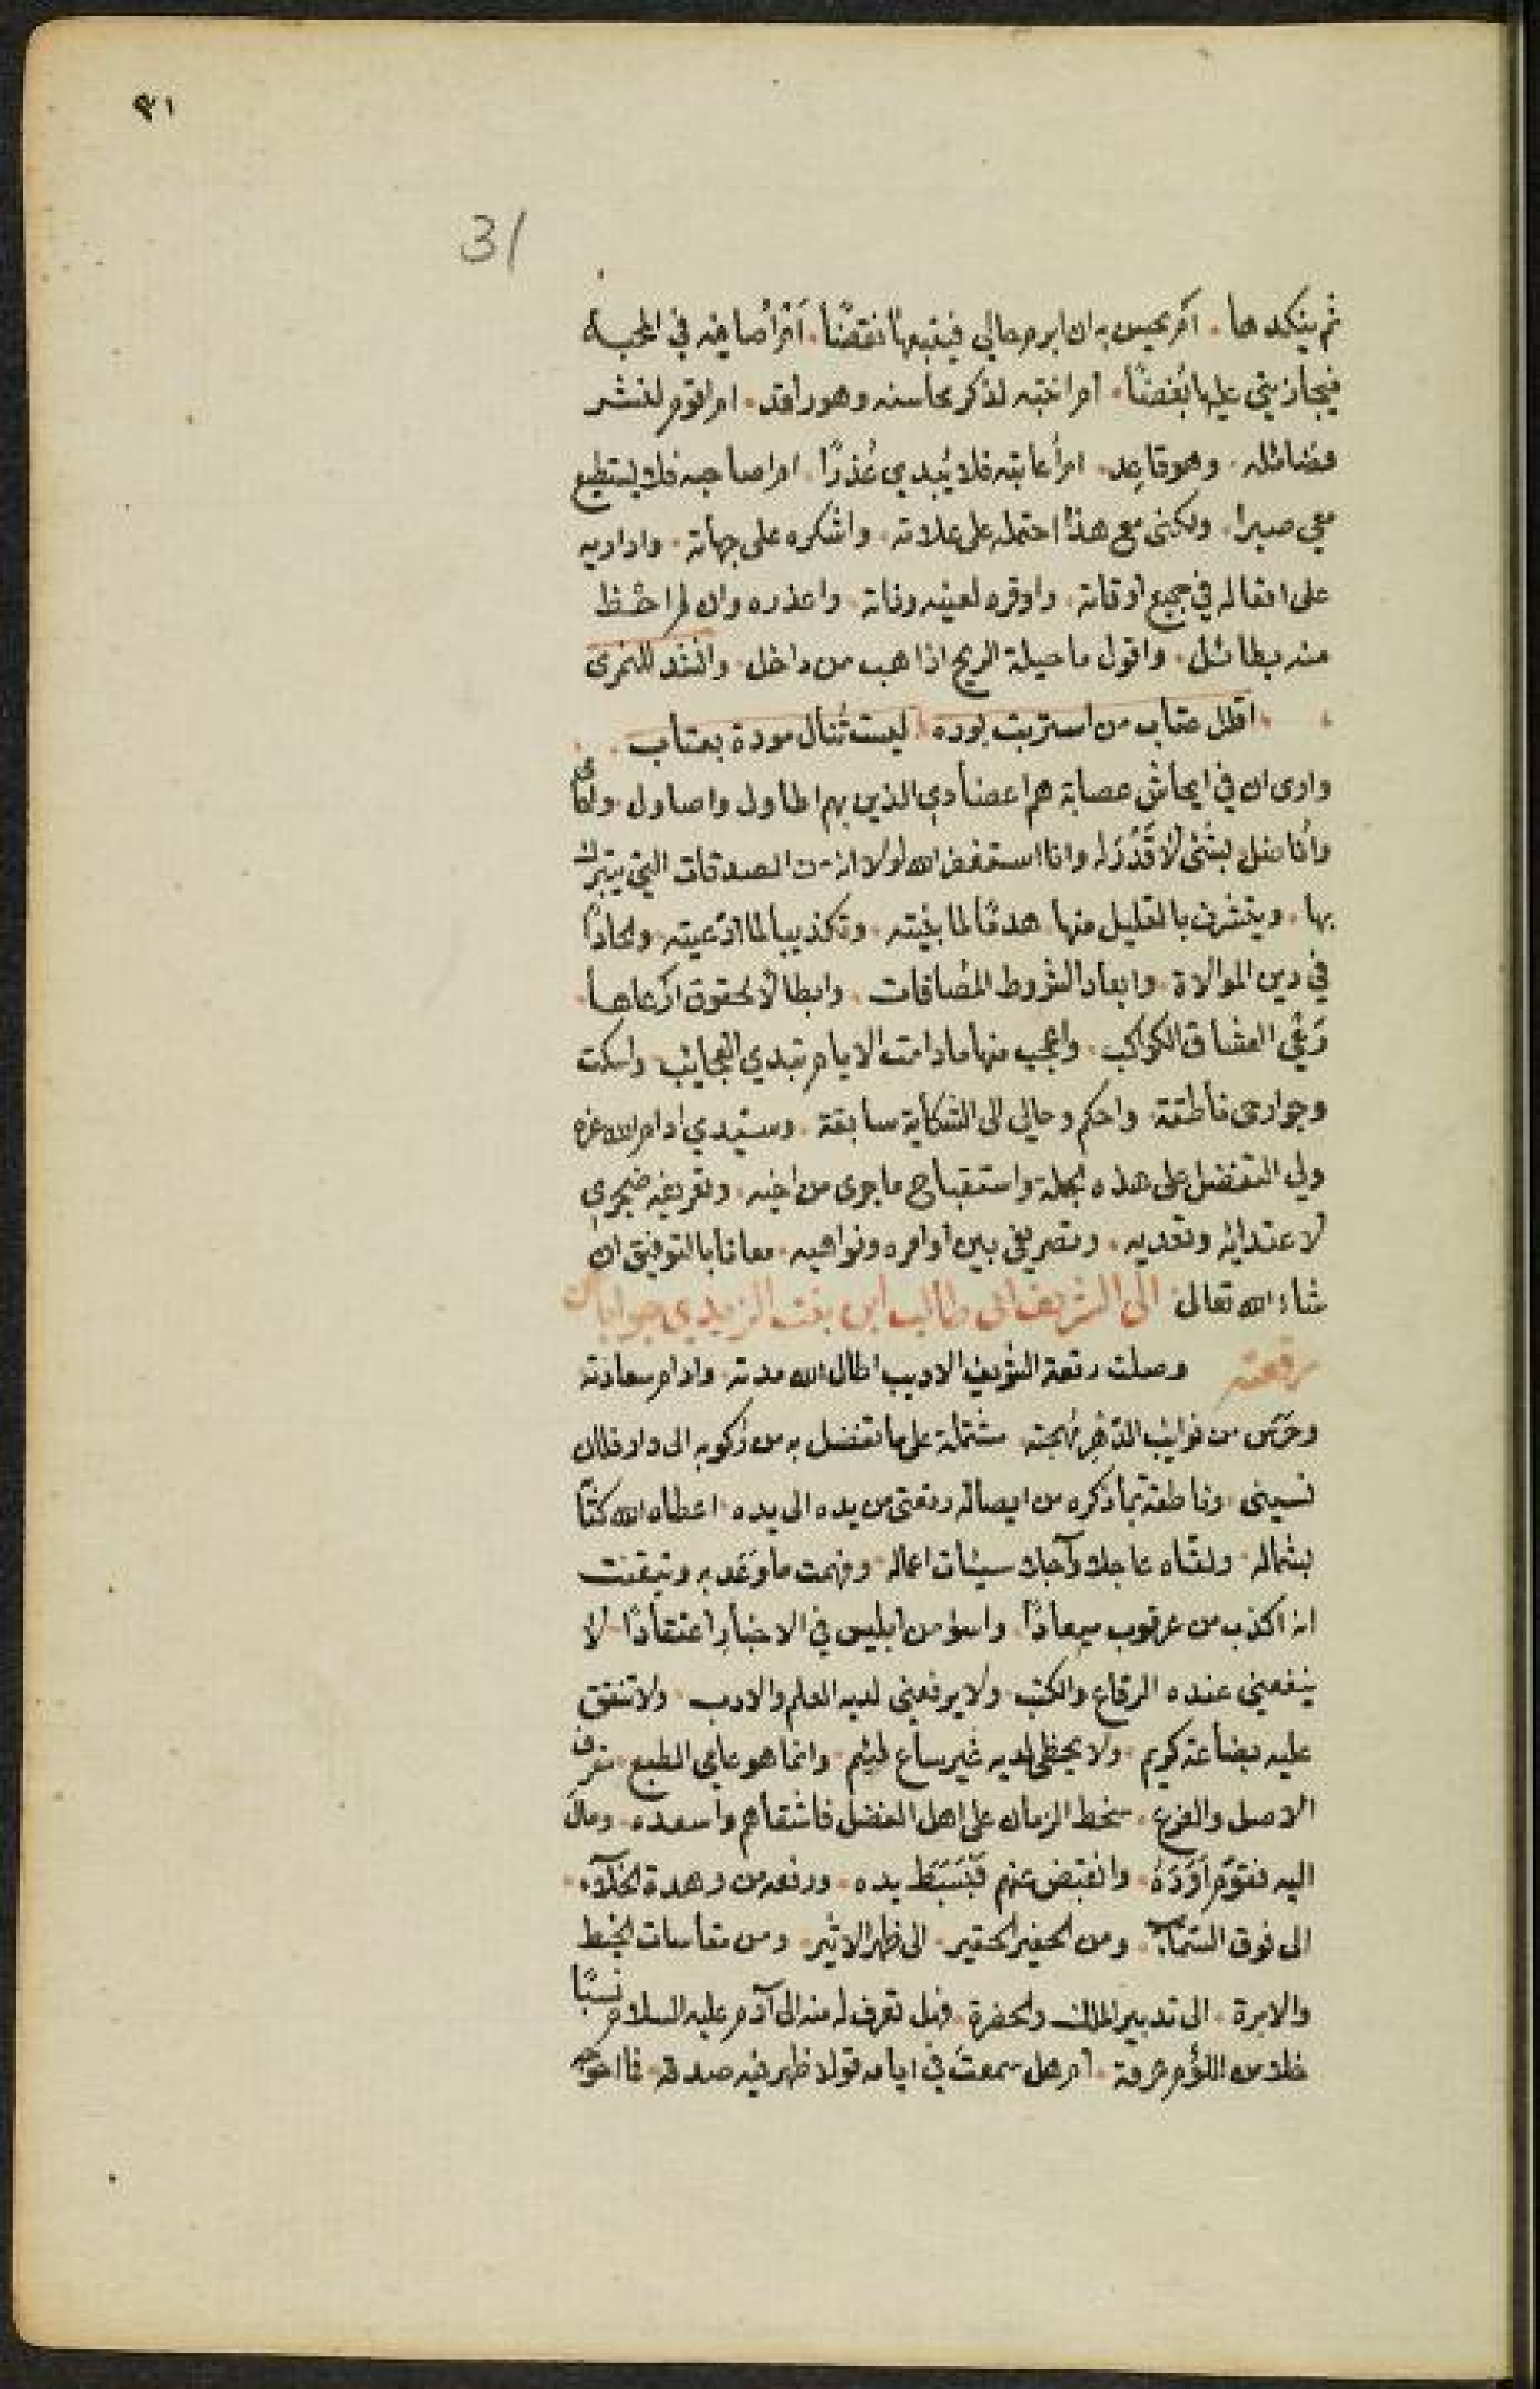 ٣١
31
ثم ينكدها . ام يحسن به ان ابرم حالي فيتبعها نقضًا . أم أصافيه في المحبة
فيجازيني عليها بُغضًا . ام انتبه لذكر محاسنه وهو راقد . ام اقوم لنشر
فضائله . وهو قاعد . ام أعاتبه فلا يُبدي عُذرًا . ام اصاحبه فلا يستطيع
معي صبرا . ولكنى مع هذا احتمله على علاته . واشكره على جهاته . واداريه
على افعاله في جميع اوقاته . واوقره لعينه وذاته . واعذره وان لم احظ
منه بطائل . واقول ما حيلة الريح اذا هب من داخل . وانشد للنمرى
اقلل عتاب من استربت بوده . ليست تُنال مودة بعتاب .
وارى ان في ايحاش عصابة هم اعضادي الذين بهم اطاول واصاول
واناضل بشئ لا قَدْرَ له وانا استغفر الله لولا انه من الصدقات التي يتبرك
بها . ويتشرف بالقليل منها هدمًا لما بنيته . وتكذيبا لما ادّعيته . والحادًا
في دين الموالاة . وابعاد الشروط المصافات . وابطالًا لحقوق ارعاها .
رَعْي العشاق الكواكب . واعجب منها ما دامت الايام تبدي العجايب . واسكت
وجوارحى ناطقة . واحكم وحالي الى الشكاية سابقة . وسيدي ادام الله عزه
ولي التفضل على هذه الجملة واستقباح ما جرى من اخيه . وتعريفه ضجري
لاعتدائه وتعديه . وتصريفى بين اوامره ونواهيه . معانا بالتوفيق ان
شاء الله تعالى الى الشريف ابى طالب ابن بنت الزيدي جوابا عن
رقعته وصلت رقعة الشريف الاديب اطال الله مدته . وادام سعادته
وحرس من نوايب الدّهر مُهجته . مشتملة على ما تفضل به من ركوبه الى دار فلان
نسيبى . وناطقة بما ذكره من ايصاله رقعتى من يده الى يده . اعطاه الله كتابًا
بشماله . ولقّاه عاجلا وآجلا سيئات اعماله . وفهمت ما وَعَد به وتيقنت
انه اكذب من عرقوب ميعادًا . واسوا من ابليس في الاخبار اعتقادًا . لا
ينفعنى عنده الرقاع والكتب . ولا يرفعنى لديه العلم والادب . ولا تنفق
عليه بضاعة كريم . ولا يحظى لديه غير ساع لئيم . وانما هو عامى الطبع .
الاصل والفرع . سخط الزمان على اهل الفضل فاشقاهم واسعده . ومال
اليه فقوّم أوَدَهُ . وانقبض عنهم فبسَط يده . ورفعه من وهدة الخلآء .
الى فوق السّمآء . ومن الحفير الحقير . الى ظهر الاثير . ومن مقاسات الخيط
والابرة . الى تدبير الملك والحضرة . فهل تعرف له منه الى آدم عليه السلام نسبًا
خلا من اللؤم عرفه . ام هل سمعتَ في ايامه قولا ظهر فيه صدقه .